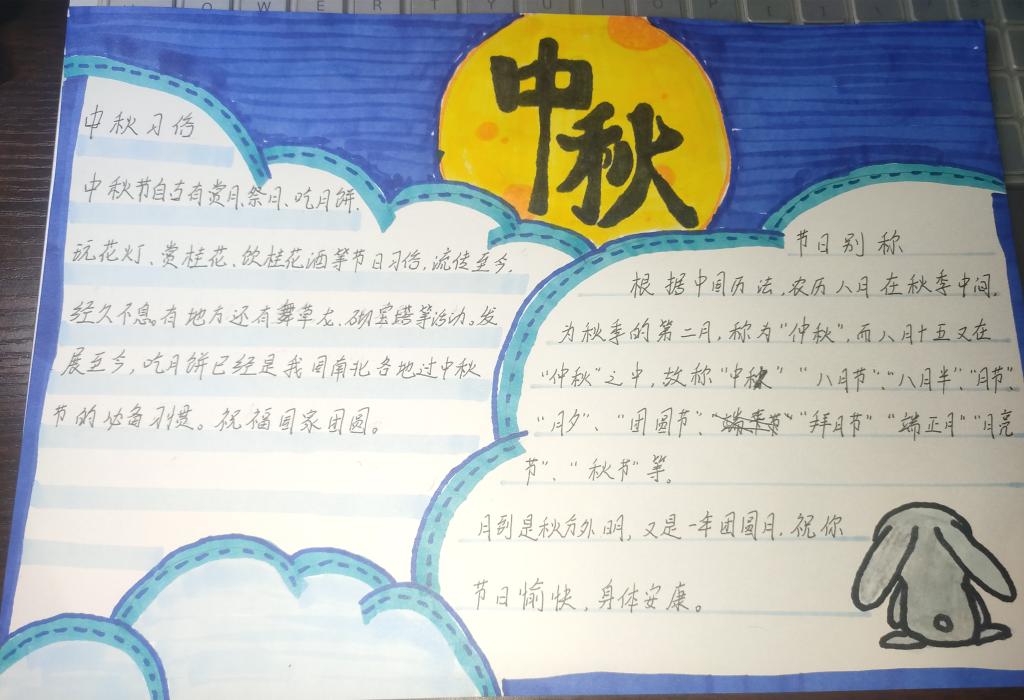 中秋
中秋习俗
中秋节自古有赏月、祭月、吃月饼、
玩花灯、赏桂花、饮桂花酒等节日习俗,流传至今,
经久不息。有地方还有舞草龙、砌宝塔等活动。发
展至今,吃月饼已经是我国南北各地过中秋
节的必备习惯。祝福国家团圆。
节日别称
根据中国历法,农历八月在秋季中间,
为秋季的第二月,称为“仲秋”,而八月十五又在
“仲秋”之中,故称“中秋”“八月节”、“八月半”、“月节”、
“月夕”、“团圆节”、“拜月节”“端正月”“月亮
节”、“秋节”等。
月到是秋分外明,又是一年团圆月,祝你
节日愉快,身体安康。